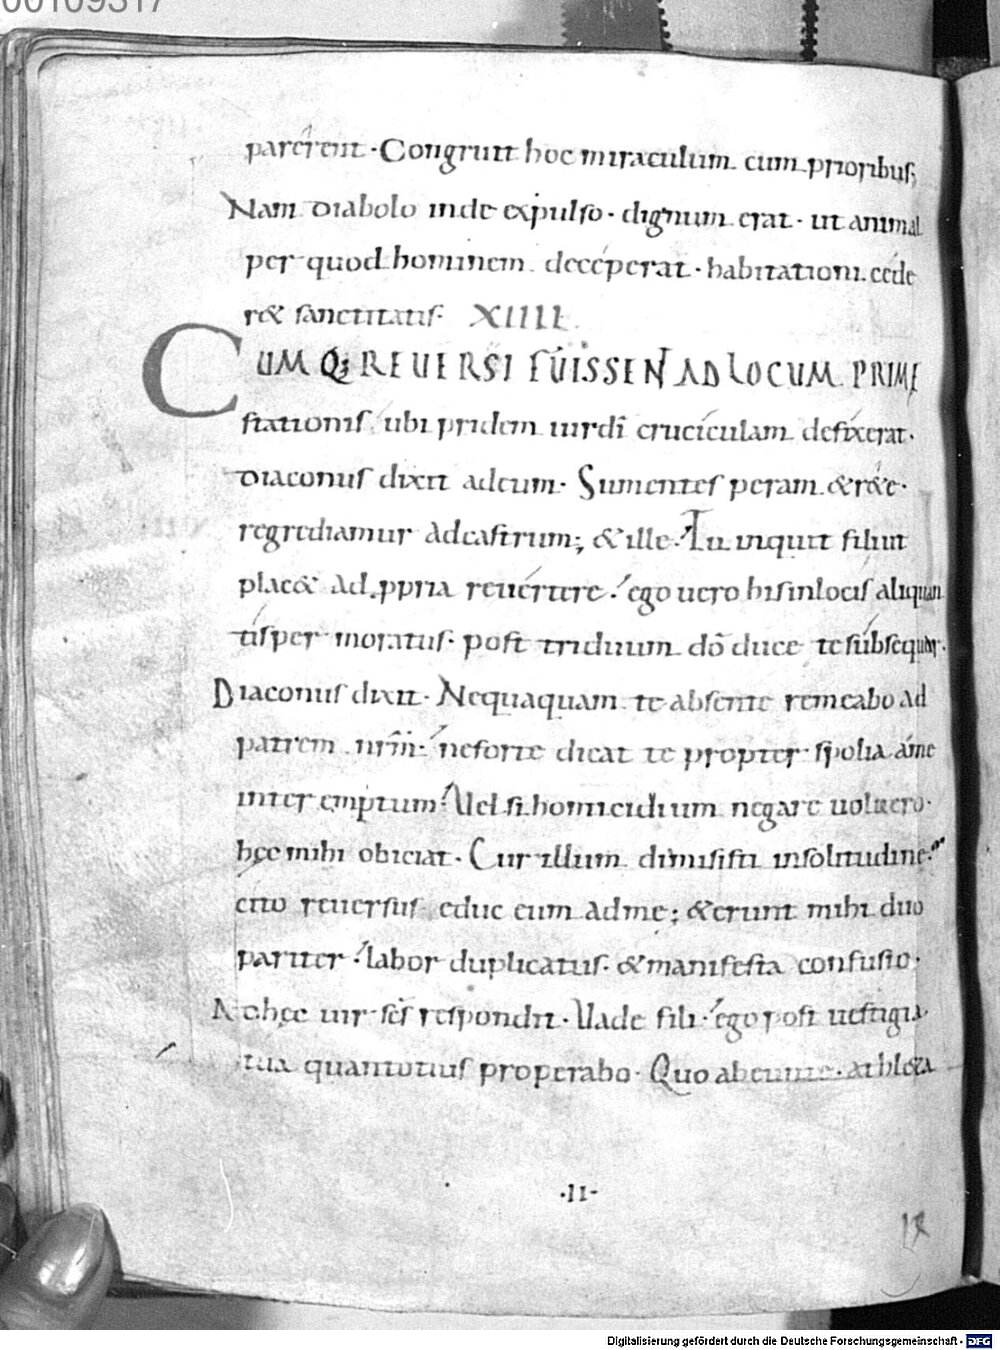 00109317
parerent · Congruit hoc miraculum cum prioribus;
Nam diabolo inde expulso · dignum erat · ut animal
per quod hominem deceperat · habitationi cede
r& sanctitatis · XIIII ·
CUM Q; REUERSI FUISSENT AD LOCUM PRIME
stationis ubi pridem uir dī cruciculam defixerat ·
diaconus dixit ad eum · Sumentes peram & r&e ·
regrediamur ad castrum; & ille · Tu inquit fili ut
plac& ad ꝓpria reuertere · ego uero his in locis aliquan
tisper moratus · post triduum dō duce te subsequar ·
Diaconus dixit · Nequaquam te absente remeabo ad
patrem nr̄m · ne forte dicat te propter spolia a me
interemptum · Uel si homicidium negare uoluero ·
hęc mihi obiciat · Cur illum dimisisti in solitudine ·
cito reuersus educ eum ad me; & erunt mihi duo
pariter · labor duplicatus · & manifesta confusio ·
Ad hęc uir sc̄s respondit · Uade fili · ego post uestigia
tua quantotius properabo · Quo abeunte · athl&a
· II ·
Digitalisierung gefördert durch die Deutsche Forschungsgemeinschaft - DFG